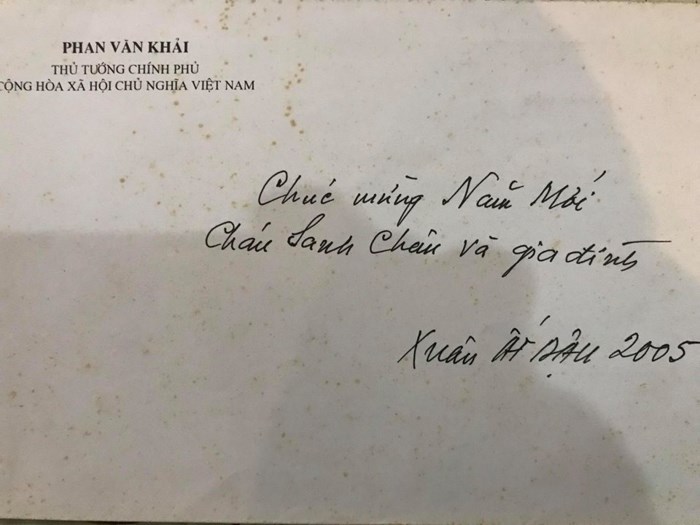 PHAN VĂN KHẢI
THỦ TƯỚNG CHÍNH PHỦ
CỘNG HÒA XÃ HỘI CHỦ NGHĨA VIỆT NAM
Chúc mừng Năm Mới
Cháu Sanh Châu và gia đình
Xuân Ất Dậu 2005